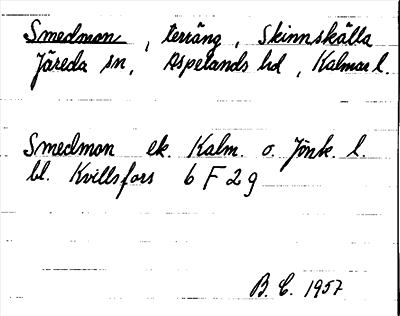 Smedmon, terräng, Skinnskälla
Järeda sn, Aspelands hd, Kalmar l.
Smedmon ek. Kalm. o. Jönk. l.
bl. Kvillsfors 6 F 2 g
B. E. 1957